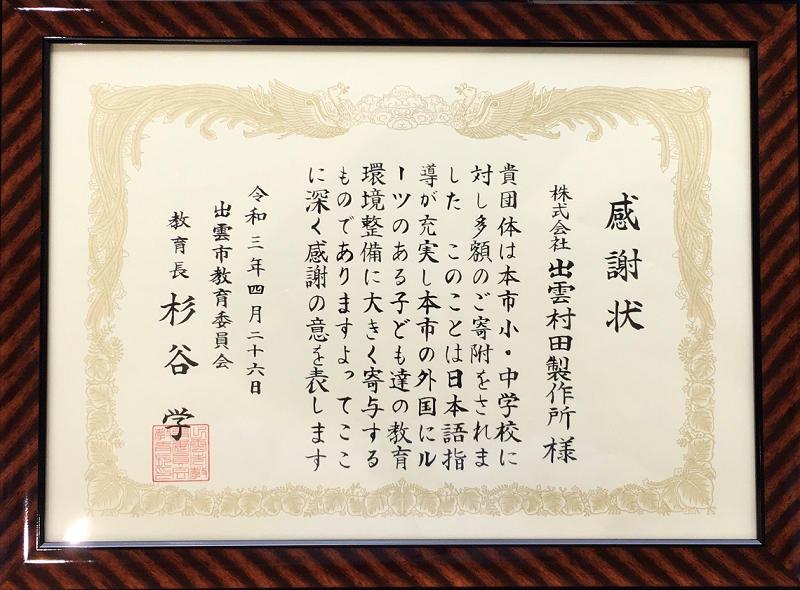 感謝状
株式会社 出雲村田製作所 様
貴団体は本市小・中学校に
対し多額のご寄附をされま
した このことは日本語指
導が充実し本市の外国にル
ーツのある子ども達の教育
環境整備に大きく寄与する
ものでありますよってここ
に深く感謝の意を表します
令和三年四月二十六日
出雲市教育委員会
教育長 杉谷 学